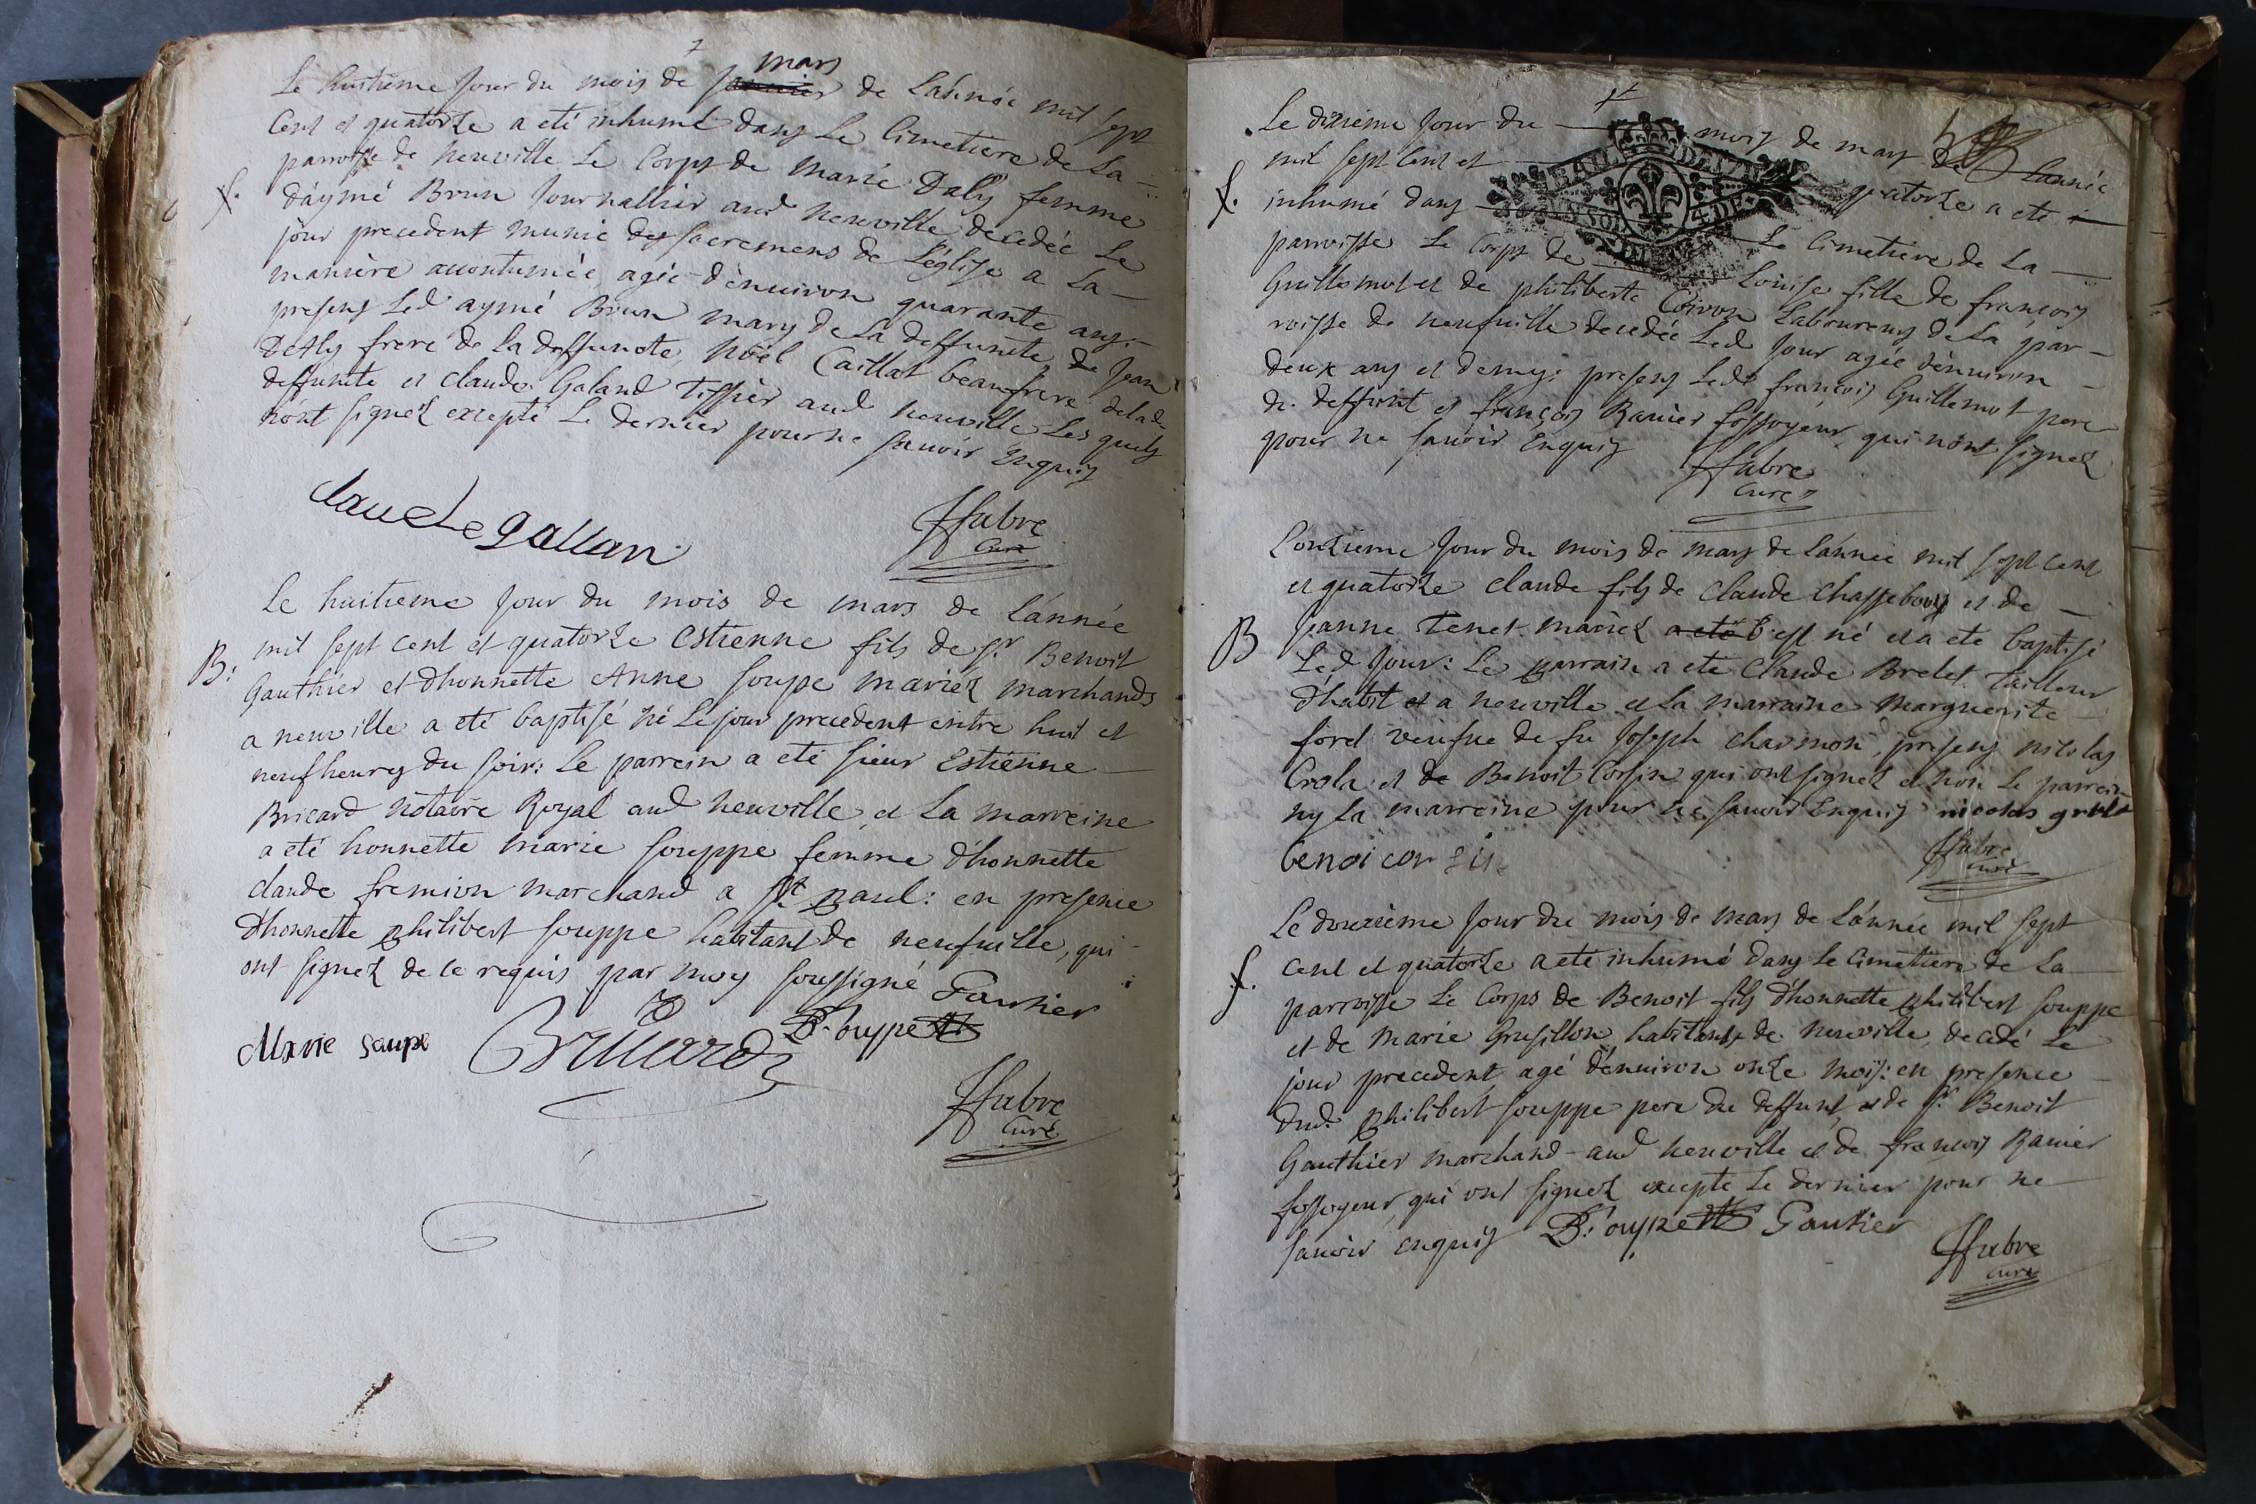 mars
Le huitieme Jour du mois de janvier de L'année mil sept
Cent et quatorze a eté inhumé dans Le Cimetiere de La
parroisse de neuville Le Corps de Marie Daly femme
f.
d'aymé Brun Journallier aud neuville decedée Le
jour precedent munie des sacremens de L'église a La
maniere accoutumée agée d'environ quarante ans:
presens Led aymé Brun mary de La deffuncte, de Jean
Dally frere de la deffuncte, Noël Caillat beaufrere de lad
deffuncte et claude Galand tissier aud neuville Les quels
n'ont signez excepté Le dernier pour ne savoir Enquis
claude gallan
ffabre
Curé
Le huitieme Jour du mois de mars de L'année
mil sept cent et quatorze Estienne fils de Sr Benoit
B:
Gauthier et d'honnette Anne souppe mariez marchands
a neuville a eté baptisé né Le jour precedent entre huit et
neuf heures du soir: Le parrein a eté sieur Estienne
Bricard notaire Royal aud neuville, et La marreine
a eté honnette marie souppe femme d'honnette
claude fremion marchand a St paul: en presence
d'honnette philibert souppe habitant de neufville, qui
ont signez de ce requis par moy soussigné
Gautier
Marie soupe
Bricard
P. souppe
ffabre
Curé
Le dixieme Jour du mois de mars de L'année
mil sept Cent et quatorze a eté
f.
inhumé dans Le Cimetiere de La
parroisse Le Corps de Louise fille de françois
Guillemot et de philiberte Coiron Laboureurs de La par-
roisse de neufville decedée Led Jour agée d'environ
deux ans et demy: presens Led françois Guillemot pere
du deffunt et françois Ranier fossoyeur qui n'ont signez
pour ne savoir Enquis
ffabre
Curé
L'onzieme Jour du mois de mars de L'année mil sept cent
et quatorze claude fils de claude chassebout et de
B
janne tenet mariez a eté est né et a eté baptisé
Led Jour: Le parrain a eté claude Brelet tailleur
d'habit et a neuville et La marraine Marguerite
forel veufue de fu Joseph charmon, presens nicolas
Crola et de Benoit Corsin qui ont signez et non Le parrein
ny La marreine pour ne savoir Enquis nicolas
benoi cor
ffabre
curé
Le douzieme Jour du mois de mars de L'année mil sept
cent et quatorze a eté inhumé dans Le Cimetiere de La
f.
parroisse Le Corps de Benoit fils d'honnette philibert souppe
et de Marie Grusillon habitants de neuville, decedé Le
jour precedent agé d'environ onze mois: en presence
dud. philibert souppe pere du deffunt et de Sr Benoit
Gauthier marchand aud neuville et de françois Ranier
fossoyeur qui ont signez excepté Le dernier pour ne
savoir enquis P. souppe Gautier
ffabre
curé